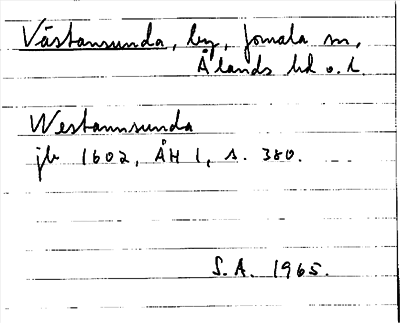 Västansunda, by, Jomala sn,
Ålands hd o. l.
Westannsunda
jb 1602, ÅH 1, s. 380.
S.A. 1965.